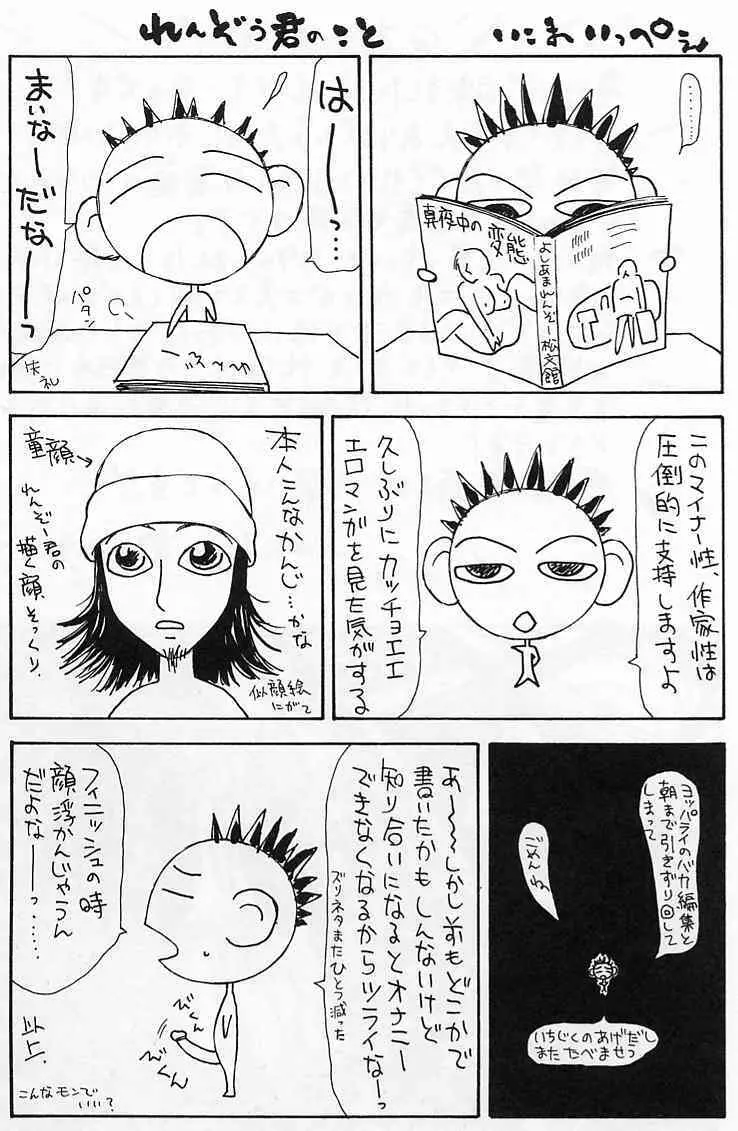 れんぞう君のこと
いこまいっぺ。
………
真夜中の
変態
よしあまれんぞー 松文館
はーーっ…
まいなーだなーーっ
パタン
失礼
このマイナー性、作家性は
圧倒的に支持しますよ
久しぶりにカッチョエエ
エロマンガを見た気がする
本人こんなかんじ…かな
童顔→
れんぞー君の
描く顔、そっくり。
似顔絵
にがて
ヨッパライのバカ編集と
朝まで引きずり回して
しまって
ごめんね
いちじくのあげだし
またたべませう
あ〜〜〜しかし前もどこかで
書いたかもしんないけど
知り合いになるとオナニー
できなくなるからツライなーっ
ズリネタまたひとつ減った
フィニッシュの時
顔浮かんじゃうん
だよなーーっ……
びくん
びくん
以上.
こんなモンで
いい?